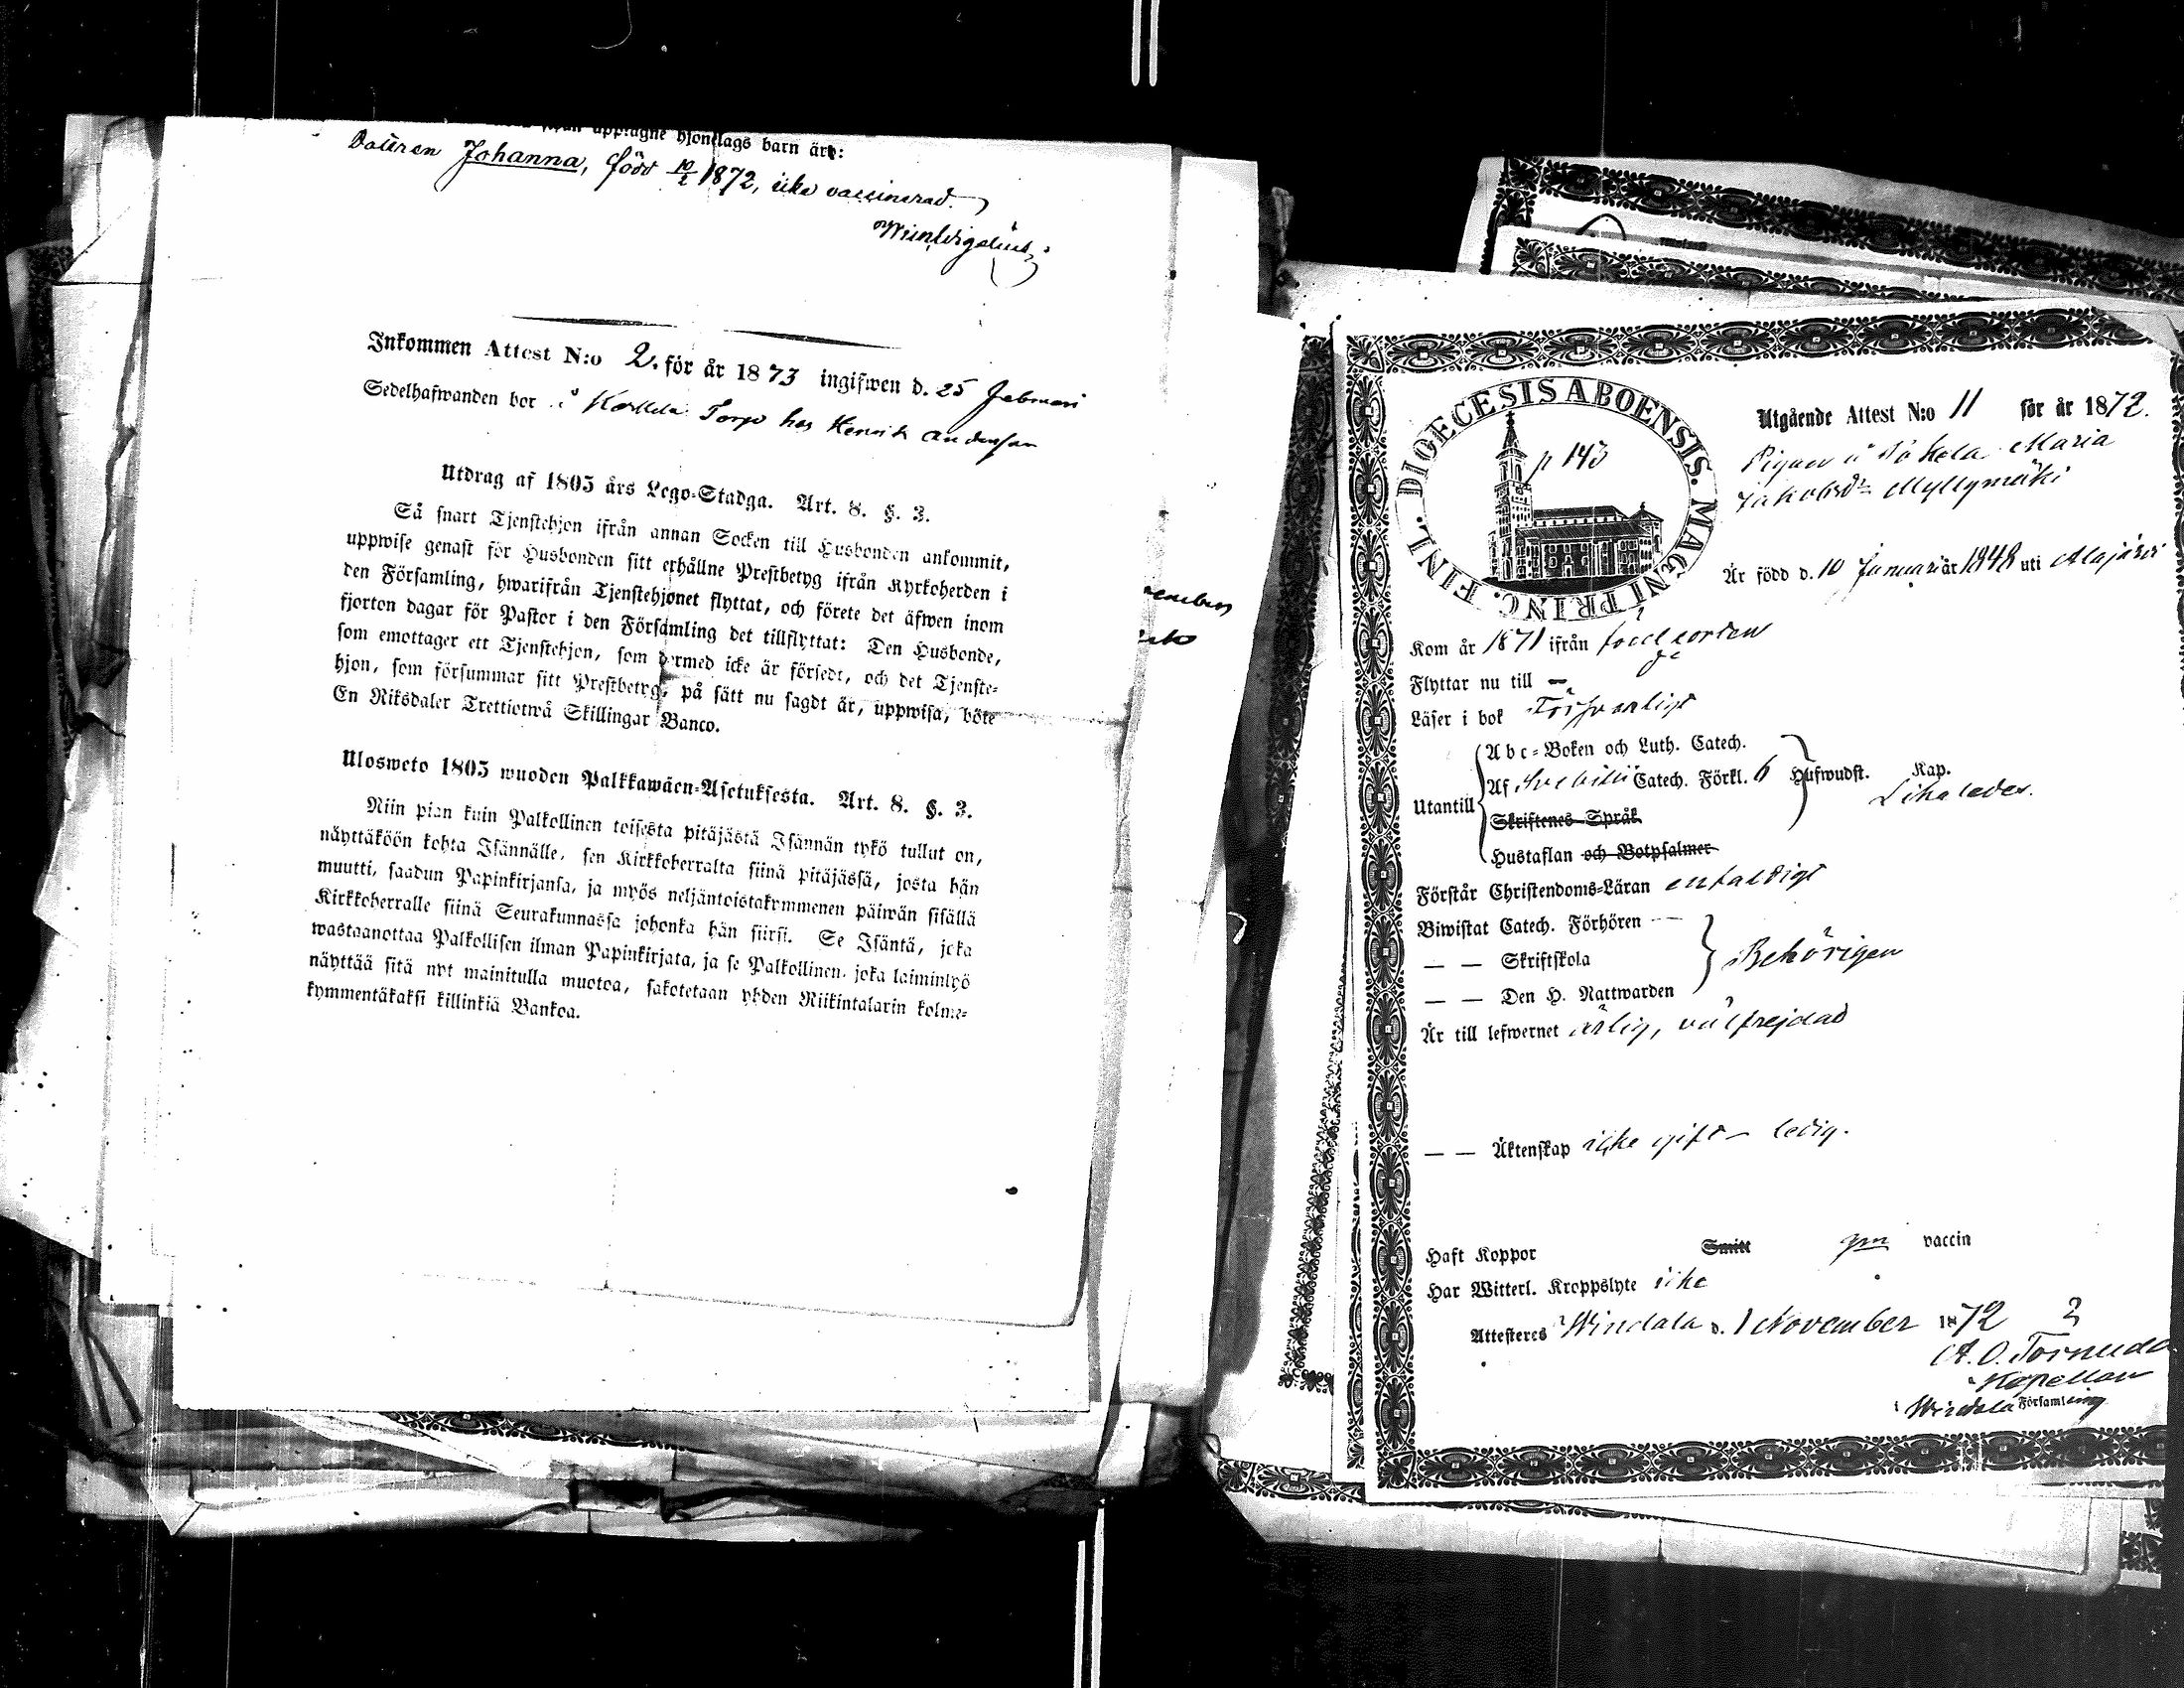 upptagne hjonelags barn äro:
Dottren Johanna, född 10/2 1872, icke vaccinerad.
Inkommen Attest N:o 2. för år 1873 ingifwen d. 25 Februari
Sedelhafwanden bor å Torp hos Henrik Andersson
Utdrag af 1805 års Lego-Stadga. Art. 8. §. 3.
Så snart Tjenstehjon ifrån annan Socken till Husbonden ankommit,
uppwise genast för Husbonden sitt erhållne Prestbetyg ifrån Kyrkoherden i
den Församling, hwarifrån Tjenstehjonet flyttat, och förete det äfwen inom
fjorton dagar för Pastor i den Församling det tillflyttat: Den Husbonde,
som emottager ett Tjenstehjon, som dermed icke är försedt, och det Tjenste-
hjon, som försummar sitt Prestbetyg, på sätt nu sagdt är, uppwisa, böte
En Riksdaler Trettiotwå Skillingar Banco.
Ulosweto 1805 wuoden Palkkawäen-Asetuksesta. Art. 8. §. 3.
Niin pian kuin Palkollinen toisesta pitäjästä Isännän tykö tullut on,
näyttäköön kohta Isännälle, sen Kirkkoherralta siinä pitäjässä, josta hän
muutti, saadun Papinkirjansa, ja myös neljäntoistakymmenen päiwän sisällä
Kirkkoherralle siinä Seurakunnassa johonka hän siirsi. Se Isäntä, joka
wastaanottaa Palkollisen ilman Papinkirjata, ja se Palkollinen, joka laiminlyö
näyttää sitä nyt mainitulla muotoa, sakotetaan yhden Riikintalarin kolme-
kymmentäkaksi killinkiä Bankoa.
DIOECESIS ABOENSIS. MAGNI PRINC. FINL.
p 143
Utgående Attest N:o 11 för år 1872.
Pigan å Maria
Jakobsdr Myllymäki
Är född d. 10 Januari år 1848 uti Alajärvi
Kom år 1871 ifrån födelseorten
Flyttar nu till —
Läser i bok Försvarligt
Utantill
Abc-Boken och Luth. Catech.
Af Svebilii Catech. Förkl. 6 Hufwudst. Kap.
Likaledes.
Skriftenes Språk
Hustaflan och Botpsalmer
Förstår Christendoms-Läran enfaldigt
Biwistat Catech. Förhören
— — Skriftskola
Behörigen
— — Den H. Nattwarden
Är till lefwernet ärlig, välfrejdad
— — Äktenskap icke gift – ledig.
Haft Koppor Smitt gm vaccin
Har Witterl. Kroppslyte icke
Attesteres Windala d. 1 November 1872
A. O. Törnudd
Kapellan
Windala Församling